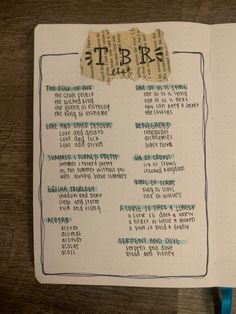 TBR
list
THE FOLK OF AIR
the cruel prince
the wicked king
the queen of nothing
the king of elfhame
LOVE AND OTHER
love and gelato
love and luck
love and olives
SUMMER I TURNED PRETTY
summer i turned pretty
its not summer without you
we'll always have summer
GRISHA TRILOGY
shadow and bone
siege and storm
ruin and rising
ACOTAR
acotar
acomaf
acowar
acofas
acosf
ONE OF US IS LYING
one of us is lying
one of us is next
you can keep a secret
the cousins
RENEGADES
renegades
archenemies
super nova
SIX OF CROWS
six of crows
crooked kingdom
KING OF SCARS
king of scars
rule of wolves
A CURSE SO DARK & LONELY
a curse so dark & lonely
a heart so fierce & broken
a vow so bold & deadly
SERPENT AND DOVE
serpent and dove
blood and honey